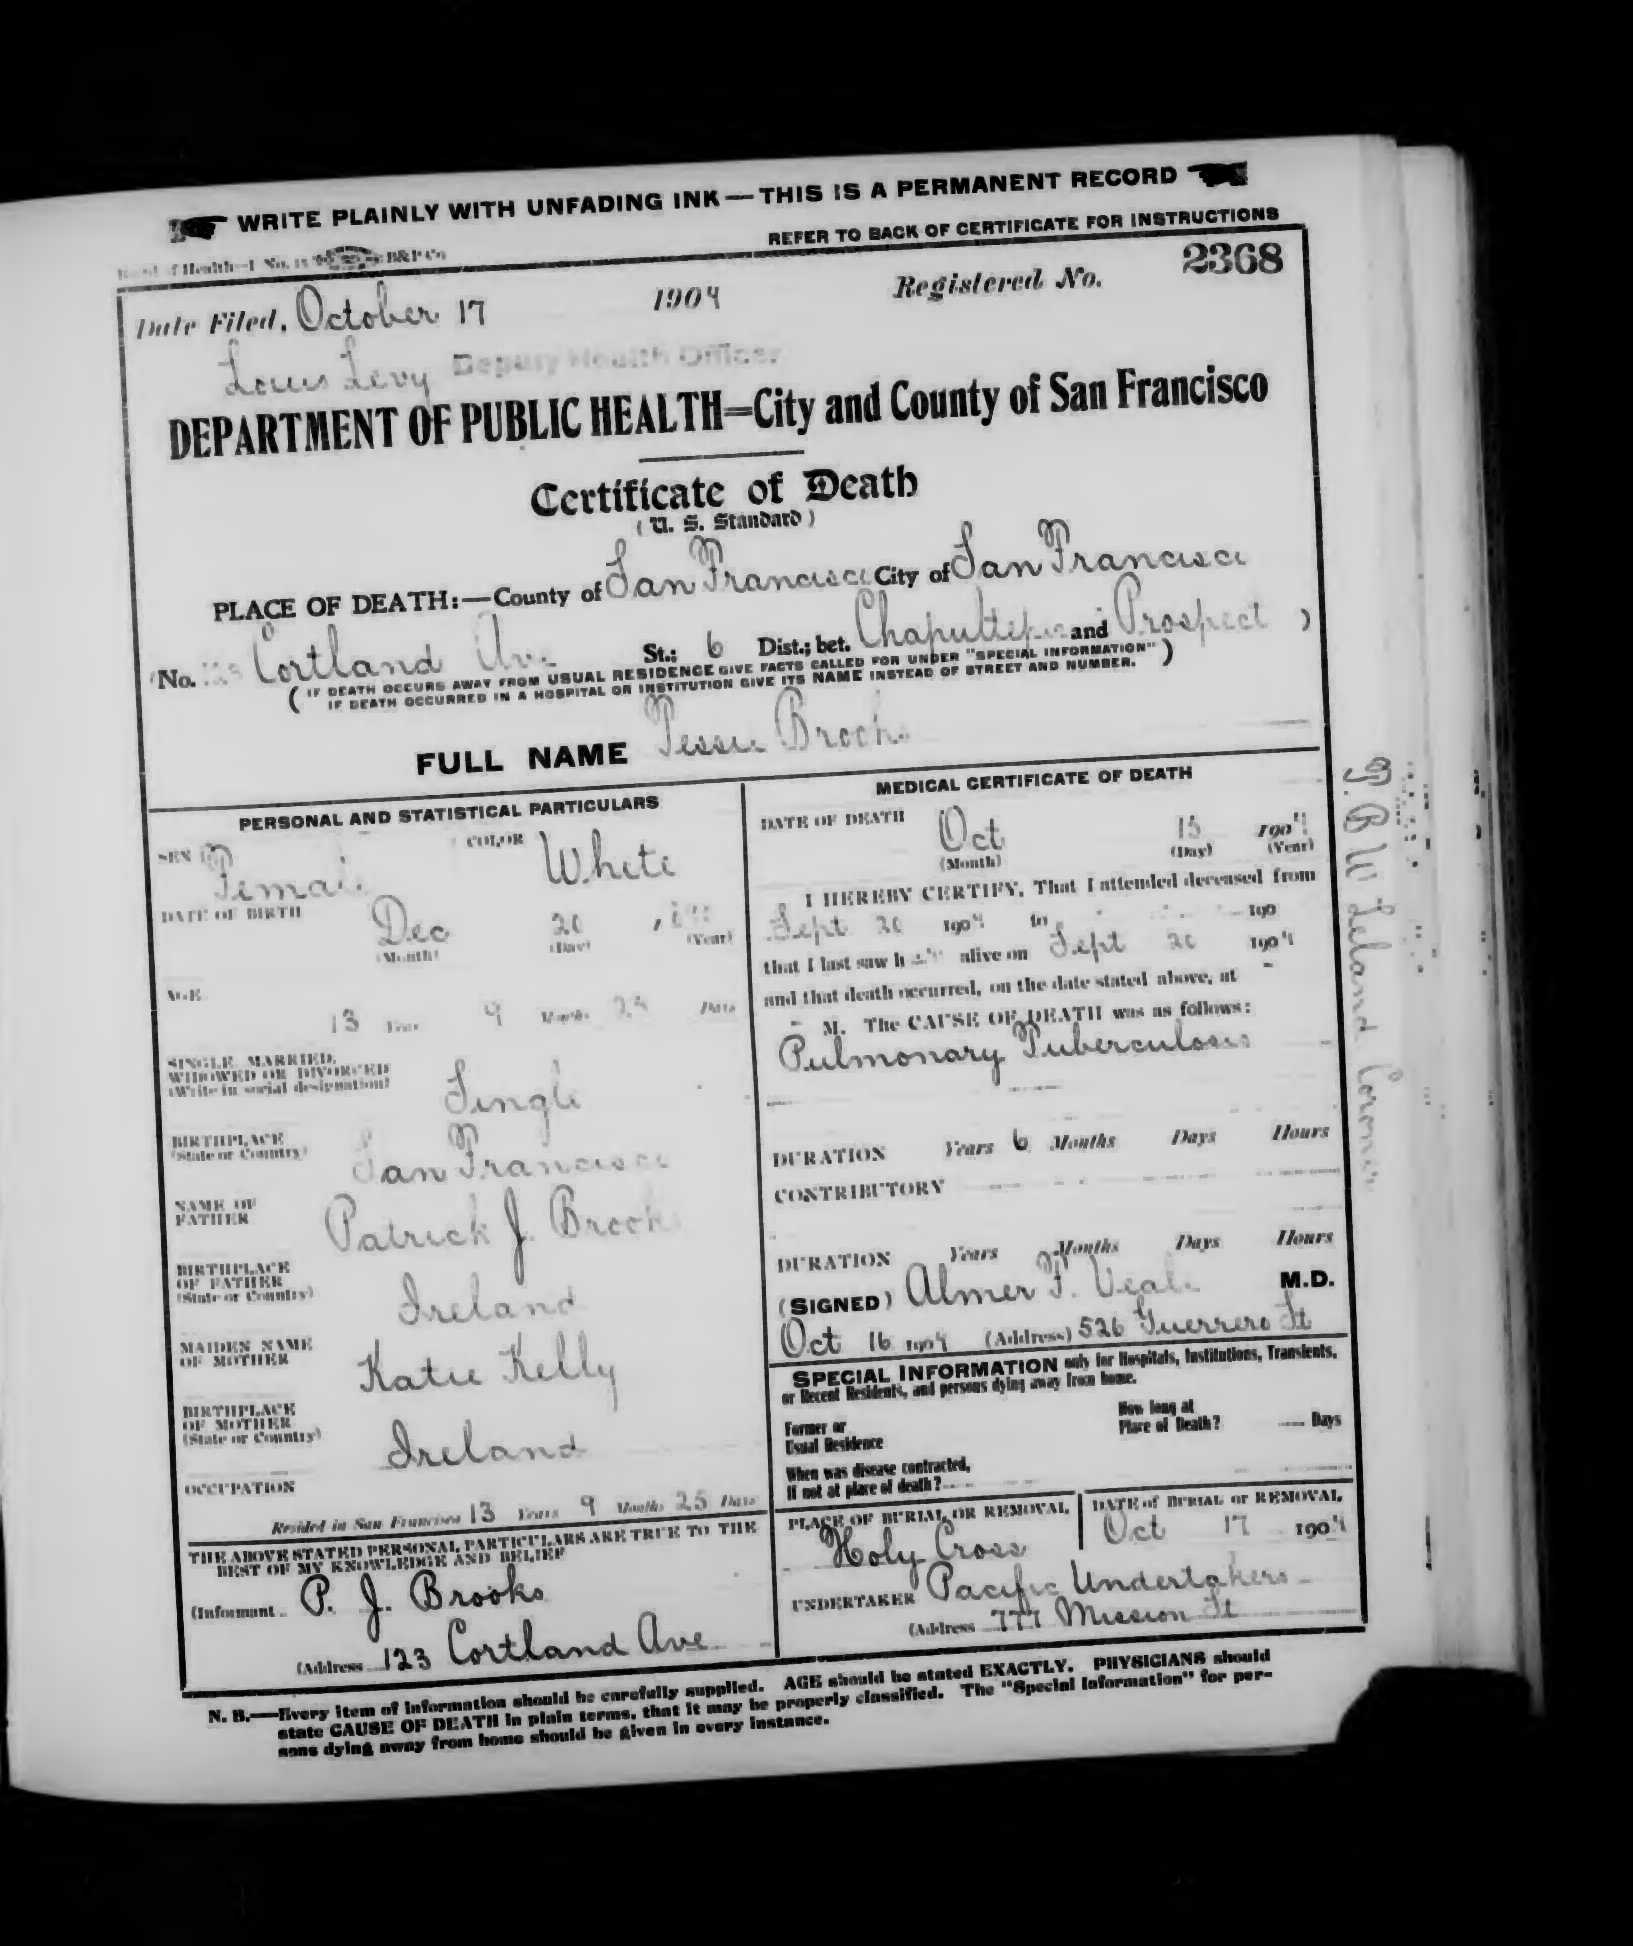 WRITE PLAINLY WITH UNFADING INK — THIS IS A PERMANENT RECORD
REFER TO BACK OF CERTIFICATE FOR INSTRUCTIONS
of Health—I No. 15 B&P Co
Date Filed, October 17 1904 Registered No. 2368
Louis Levy Deputy Health Officer
DEPARTMENT OF PUBLIC HEALTH=City and County of San Francisco
Certificate of Death
(U. S. Standard)
PLACE OF DEATH:—County of San Francisco City of San Francisco
(No. Cortland Ave St.; 6 Dist.; bet. and Prospect )
( IF DEATH OCCURS AWAY FROM USUAL RESIDENCE GIVE FACTS CALLED FOR UNDER "SPECIAL INFORMATION" )
IF DEATH OCCURRED IN A HOSPITAL OR INSTITUTION GIVE ITS NAME INSTEAD OF STREET AND NUMBER.
FULL NAME Brooks
PERSONAL AND STATISTICAL PARTICULARS
SEX Female COLOR White
DATE OF BIRTH Dec 20
(Month) (Day) (Year)
AGE
13 Years 9 Months 25 Days
SINGLE, MARRIED,
WIDOWED OR DIVORCED
(Write in social designation) Single
BIRTHPLACE
(State or Country) San Francisco
NAME OF
FATHER Patrick J. Brooks
BIRTHPLACE
OF FATHER
(State or Country) Ireland
MAIDEN NAME
OF MOTHER Katie Kelly
BIRTHPLACE
OF MOTHER
(State or Country) Ireland
OCCUPATION
Resided in San Francisco 13 Years 9 Months 25 Days
THE ABOVE STATED PERSONAL PARTICULARS ARE TRUE TO THE
BEST OF MY KNOWLEDGE AND BELIEF
(Informant P. J. Brooks
(Address 123 Cortland Ave
MEDICAL CERTIFICATE OF DEATH
DATE OF DEATH Oct 15 1904
(Month) (Day) (Year)
I HEREBY CERTIFY, That I attended deceased from
Sept 20 1904 to 190
that I last saw h alive on Sept 20 1904
and that death occurred, on the date stated above, at -
- M. The CAUSE OF DEATH was as follows:
Pulmonary Tuberculosis
DURATION Years 6 Months Days Hours
CONTRIBUTORY
DURATION Years Months Days Hours
(SIGNED) Almer F. Veale M.D.
Oct 16 1904 (Address) 526 Guerrero St
SPECIAL INFORMATION only for Hospitals, Institutions, Transients,
or Recent Residents, and persons dying away from home.
Former or
Usual Residence
How long at
Place of Death? Days
When was disease contracted,
If not at place of death?
PLACE OF BURIAL OR REMOVAL
Holy Cross
DATE of BURIAL or REMOVAL
Oct 17 1904
UNDERTAKER Pacific Undertakers
(Address 777 Mission St
N. B.—Every item of information should be carefully supplied. AGE should be stated EXACTLY. PHYSICIANS should
state CAUSE OF DEATH in plain terms, that it may be properly classified. The "Special Information" for per-
sons dying away from home should be given in every instance.
Leland Coroner